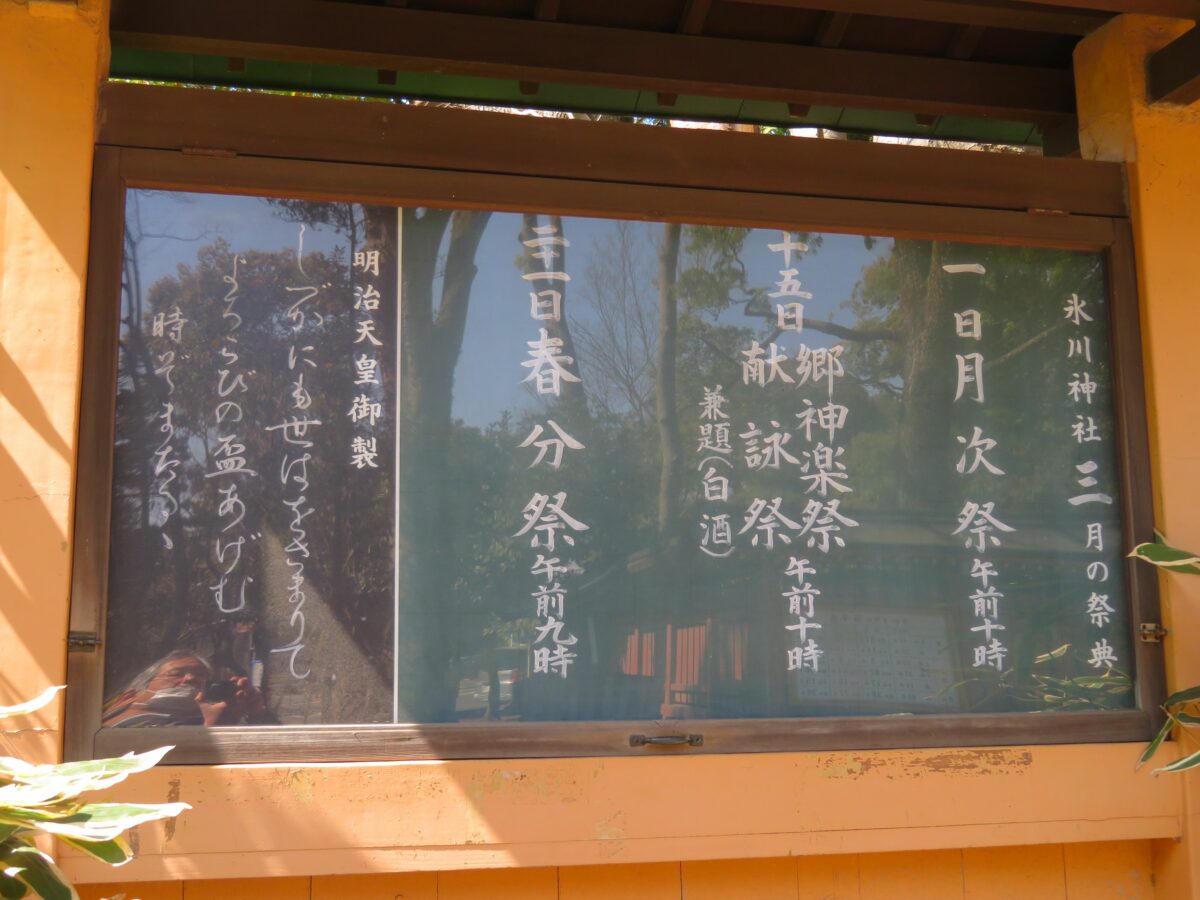 氷川神社三月の祭典
一日月次祭午前十時
十五日郷神楽祭午前十時
献詠祭
兼題(白酒)
二十一日春分祭午前九時
明治天皇御製
しづかにも世はをさまりて
よろこびの盃あげむ
時ぞまたるゝ